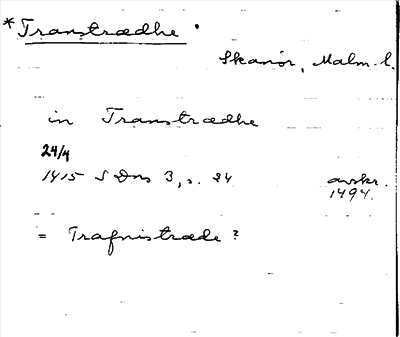 *Transtrædhe.
Skanör, Malm. l.
in Transtrædhe
24/4
1415 S Dns 3, s. 24 avskr.
1494.
= Trafnistræde?